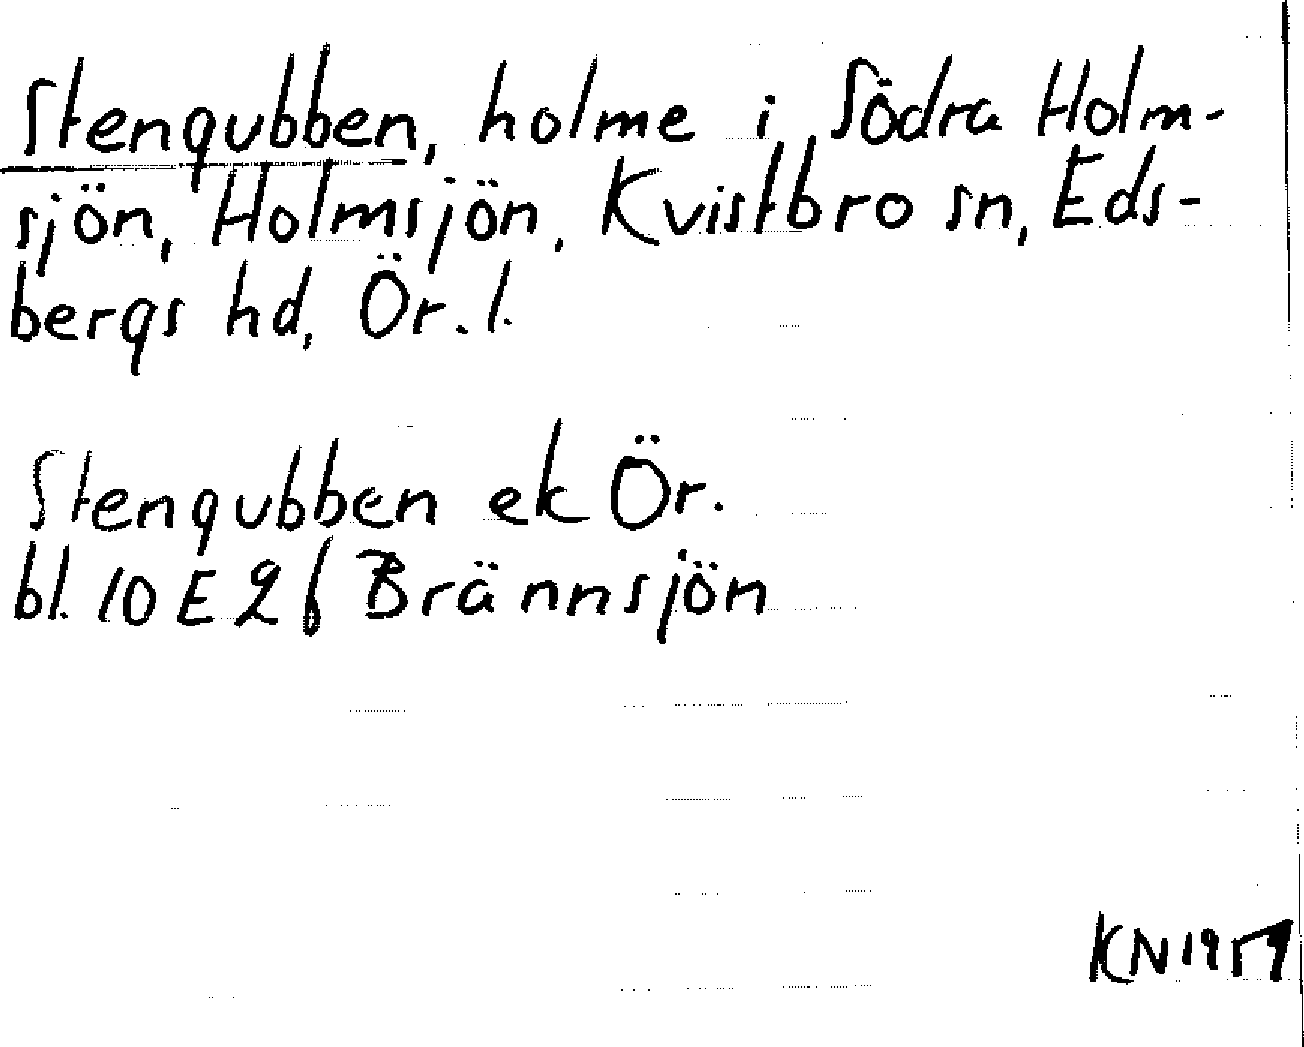 Stengubben, holme i Södra Holm-
sjön, Holmsjön, Kvistbro sn, Eds-
bergs hd, Ör. l.
Stengubben ek Ör.
bl. 10 E 2 f Brännsjön
KN